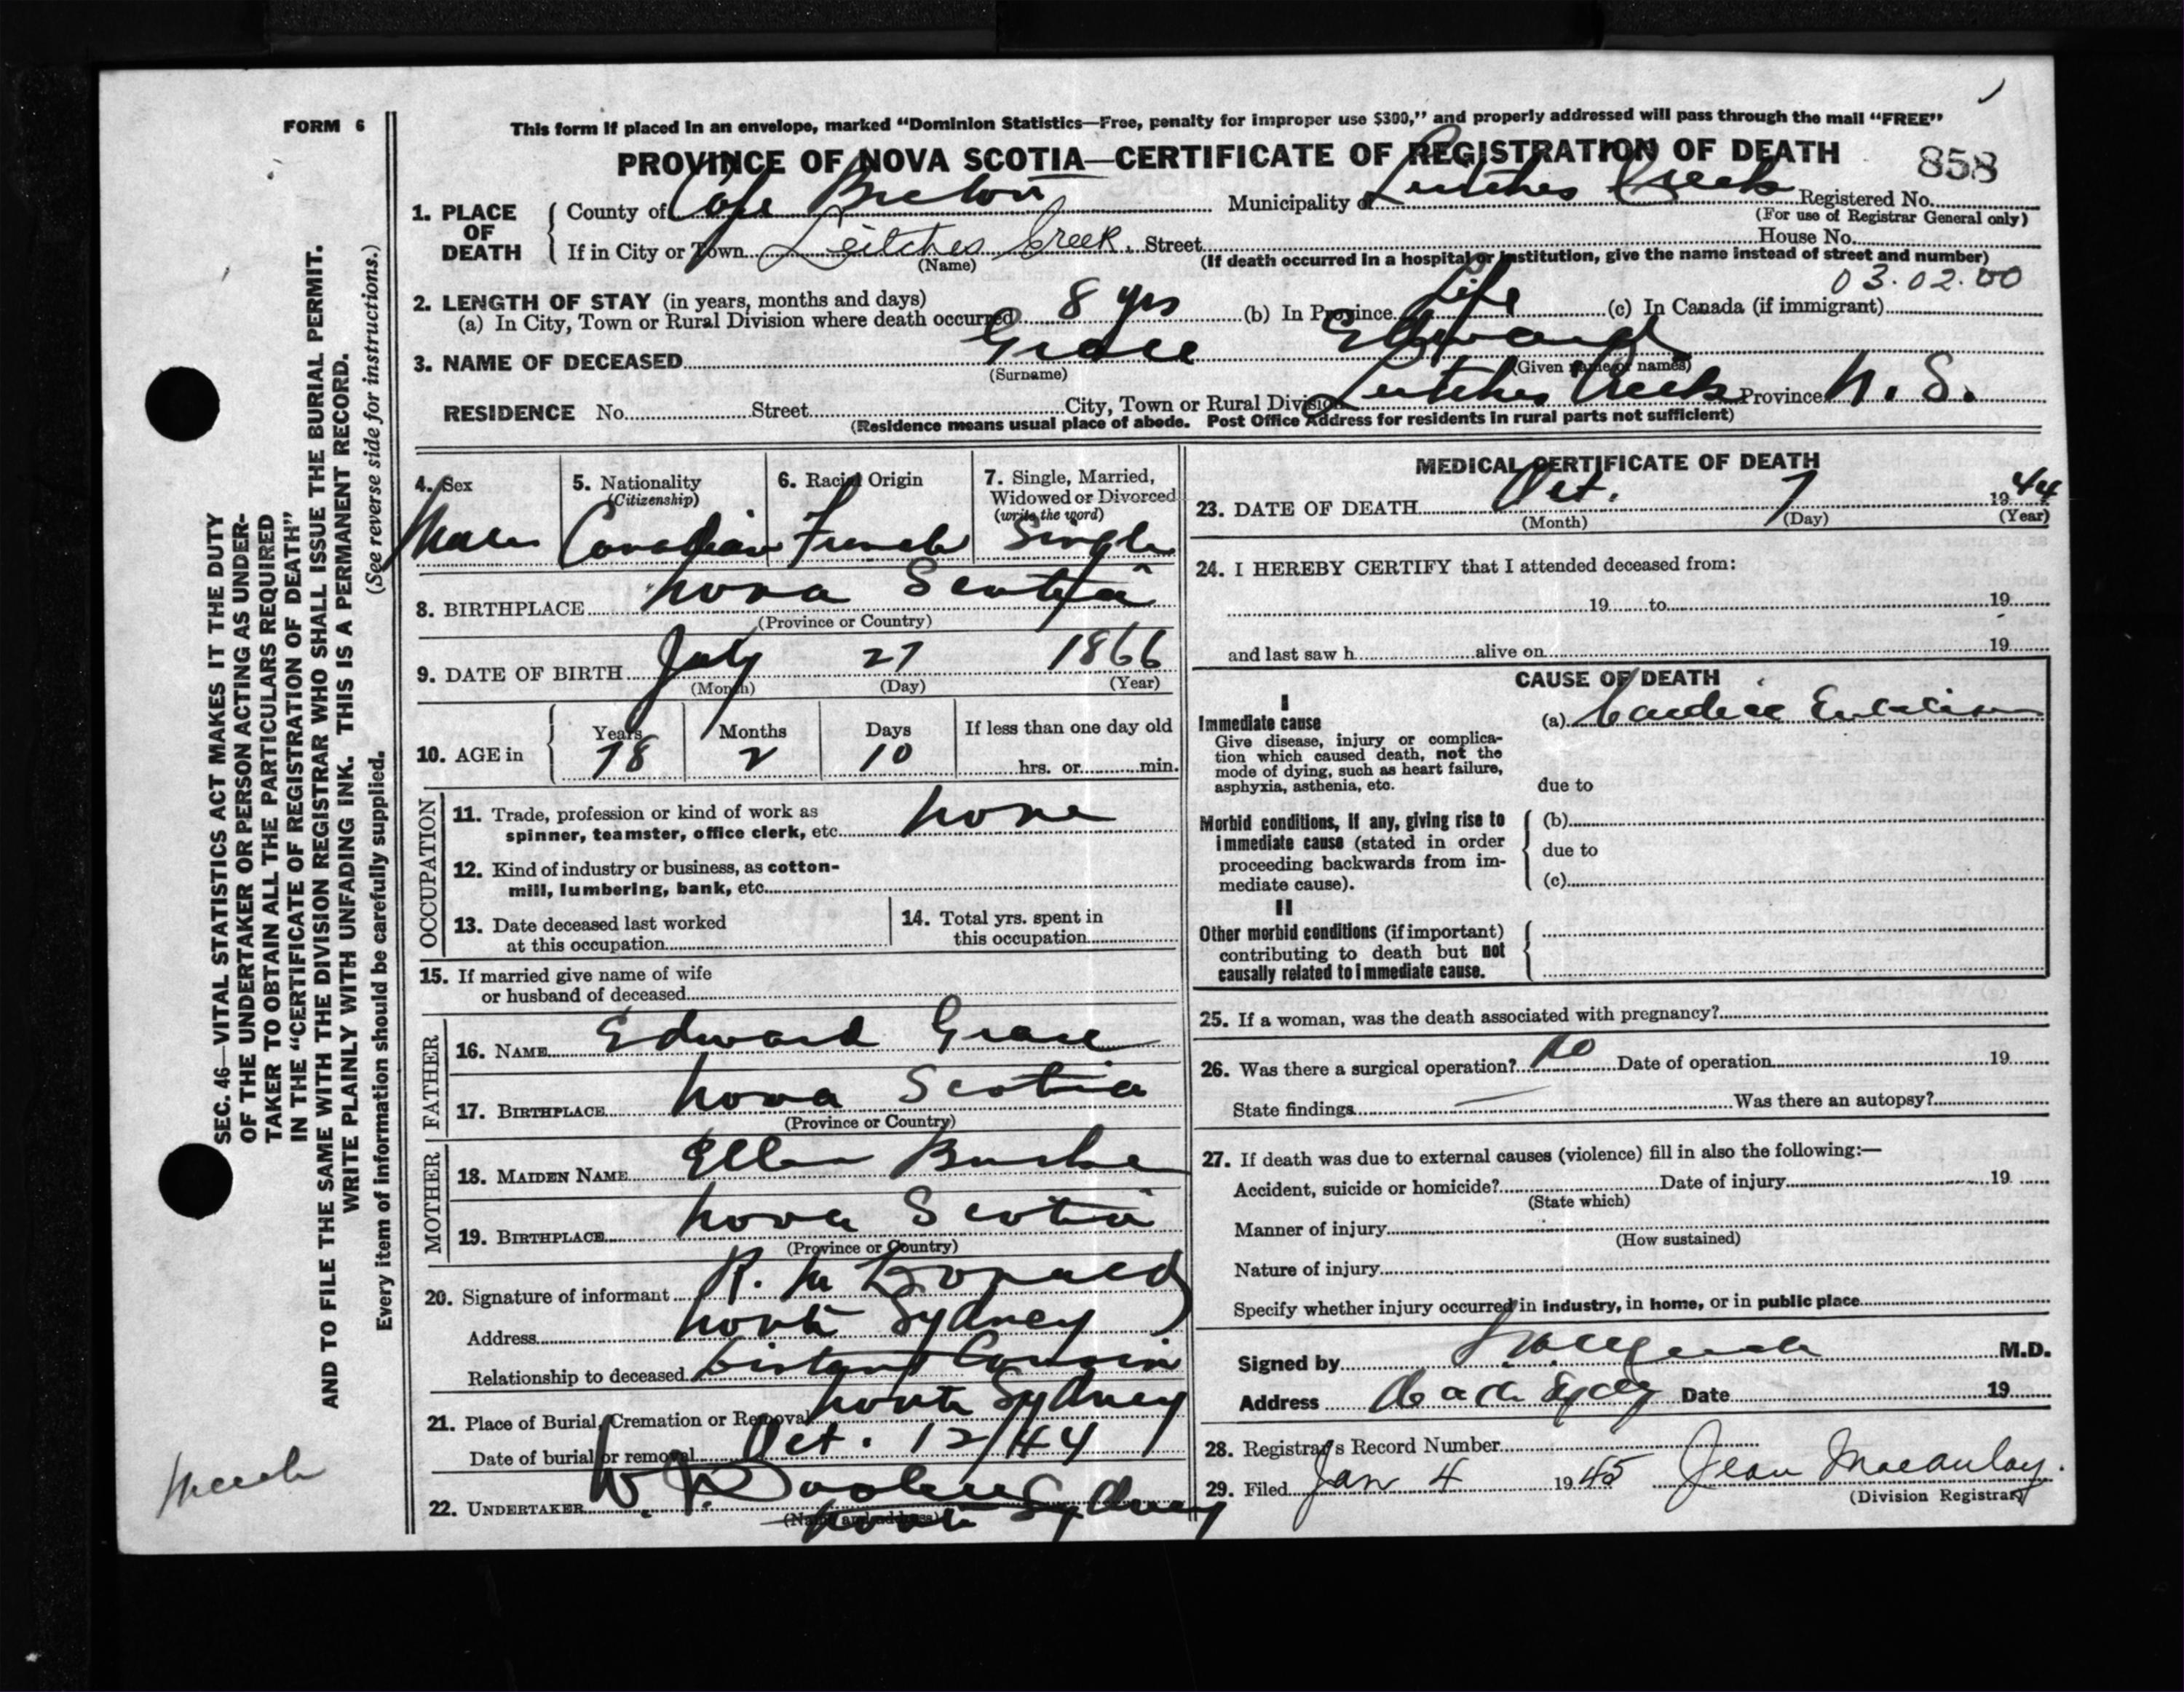 FORM 6
This form if placed in an envelope, marked “Dominion Statistics—Free, penalty for improper use $300,” and properly addressed will pass through the mail “FREE”
PROVINCE OF NOVA SCOTIA—CERTIFICATE OF REGISTRATION OF DEATH 858
1. PLACE OF DEATH
County of Cape Breton Municipality of Leitches Creek Registered No.
(For use of Registrar General only)
If in City or Town Leitches Creek. Street House No.
(Name) (If death occurred in a hospital or institution, give the name instead of street and number)
03.02.00
2. LENGTH OF STAY (in years, months and days)
(a) In City, Town or Rural Division where death occurred 8 yrs (b) In Province Life (c) In Canada (if immigrant)
3. NAME OF DECEASED Grace Edward
(Surname) (Given name or names)
RESIDENCE No. Street City, Town or Rural Division Leitches Creek Province N. S.
(Residence means usual place of abode. Post Office Address for residents in rural parts not sufficient)
4. Sex 5. Nationality (Citizenship) 6. Racial Origin 7. Single, Married, Widowed or Divorced (write the word)
Male Canadian French Single
8. BIRTHPLACE Nova Scotia
(Province or Country)
9. DATE OF BIRTH July 27 1866
(Month) (Day) (Year)
10. AGE in Years Months Days If less than one day old
78 2 10 hrs. or min.
OCCUPATION
11. Trade, profession or kind of work as
spinner, teamster, office clerk, etc. none
12. Kind of industry or business, as cotton-
mill, lumbering, bank, etc.
13. Date deceased last worked
at this occupation
14. Total yrs. spent in
this occupation
15. If married give name of wife
or husband of deceased
FATHER
16. NAME Edward Grace
17. BIRTHPLACE Nova Scotia
(Province or Country)
MOTHER
18. MAIDEN NAME Ellen Burke
19. BIRTHPLACE Nova Scotia
(Province or Country)
20. Signature of informant R. McDonald
Address North Sydney
Relationship to deceased Distant Cousin
21. Place of Burial, Cremation or Removal North Sydney
Date of burial or removal Oct. 12/44
22. UNDERTAKER W. J. Dooley
(Name and address) North Sydney
MEDICAL CERTIFICATE OF DEATH
23. DATE OF DEATH Oct. 7 1944
(Month) (Day) (Year)
24. I HEREBY CERTIFY that I attended deceased from:
19 to 19
and last saw h alive on 19
CAUSE OF DEATH
I
Immediate cause (a) Cardiac
Give disease, injury or complica-
tion which caused death, not the
mode of dying, such as heart failure,
asphyxia, asthenia, etc. due to
Morbid conditions, if any, giving rise to (b)
immediate cause (stated in order due to
proceeding backwards from im-
mediate cause). (c)
II
Other morbid conditions (if important)
contributing to death but not
causally related to immediate cause.
25. If a woman, was the death associated with pregnancy?
26. Was there a surgical operation? no Date of operation 19
State findings — Was there an autopsy?
27. If death was due to external causes (violence) fill in also the following:—
Accident, suicide or homicide? Date of injury 19
(State which)
Manner of injury
(How sustained)
Nature of injury
Specify whether injury occurred in industry, in home, or in public place
Signed by M.D.
Address Date 19
28. Registrar's Record Number
29. Filed Jan 4 1945 Jean Macaulay.
(Division Registrar)
SEC. 46—VITAL STATISTICS ACT MAKES IT THE DUTY
OF THE UNDERTAKER OR PERSON ACTING AS UNDER-
TAKER TO OBTAIN ALL THE PARTICULARS REQUIRED
IN THE “CERTIFICATE OF REGISTRATION OF DEATH”
AND TO FILE THE SAME WITH THE DIVISION REGISTRAR WHO SHALL ISSUE THE BURIAL PERMIT.
WRITE PLAINLY WITH UNFADING INK. THIS IS A PERMANENT RECORD.
Every item of information should be carefully supplied. (See reverse side for instructions.)